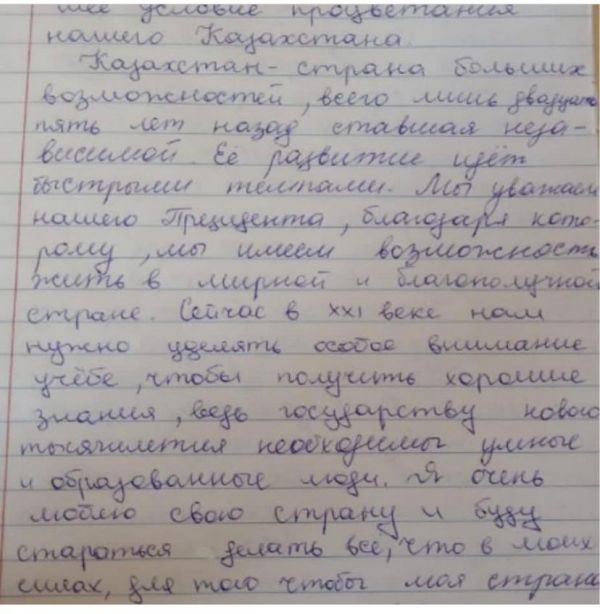 шее условие процветания
нашего Казахстана.
Казахстан - страна больших
возможностей, всего лишь двадцать
пять лет назад ставшая неза-
висимой. Её развитие идёт
быстрыми темпами. Мы уважаем
нашего Президента, благодаря кото-
рому, мы имеем возможность
жить в мирной и благополучной
стране. Сейчас в XXI веке нам
нужно уделять особое внимание
учёбе, чтобы получить хорошие
знания, ведь государству нового
тысячилетия необходимы умные
и образованные люди. Я очень
люблю свою страну и буду
стараться делать всё, что в моих
силах, для того чтобы моя страна